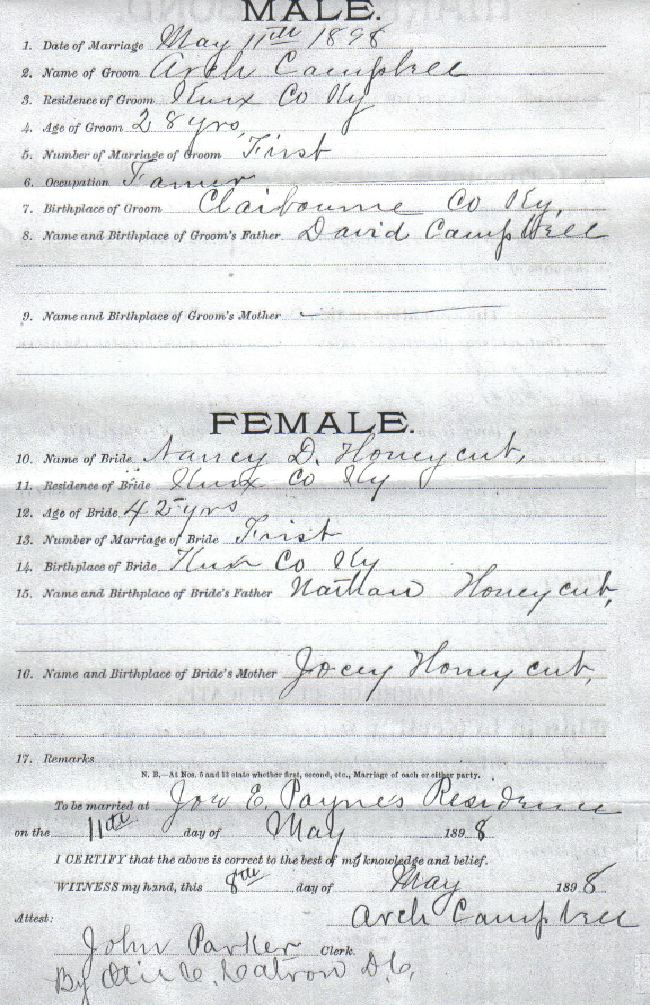 MALE.
1. Date of Marriage May 11th 1898
2. Name of Groom Arch Campbell
3. Residence of Groom Knox Co Ky
4. Age of Groom 28 yrs,
5. Number of Marriage of Groom First
6. Occupation Famer
7. Birthplace of Groom Claibourne Co Ky,
8. Name and Birthplace of Groom's Father David Campbell
9. Name and Birthplace of Groom's Mother
FEMALE.
10. Name of Bride Nancy D. Honeycut,
11. Residence of Bride Knox Co Ky
12. Age of Bride 42 yrs
13. Number of Marriage of Bride First
14. Birthplace of Bride Knox Co Ky
15. Name and Birthplace of Bride's Father Nathan Honeycut,
16. Name and Birthplace of Bride's Mother Jocey Honeycut,
17. Remarks
N. B.—At Nos. 5 and 13 state whether first, second, etc., Marriage of each or either party.
To be married at Joe E. Payne's Residence
on the 11th day of May 1898
I CERTIFY that the above is correct to the best of my knowledge and belief.
WITNESS my hand, this 8th day of May 1898
Arch Campbell
Attest:
John Parker Clerk.
By D.C,